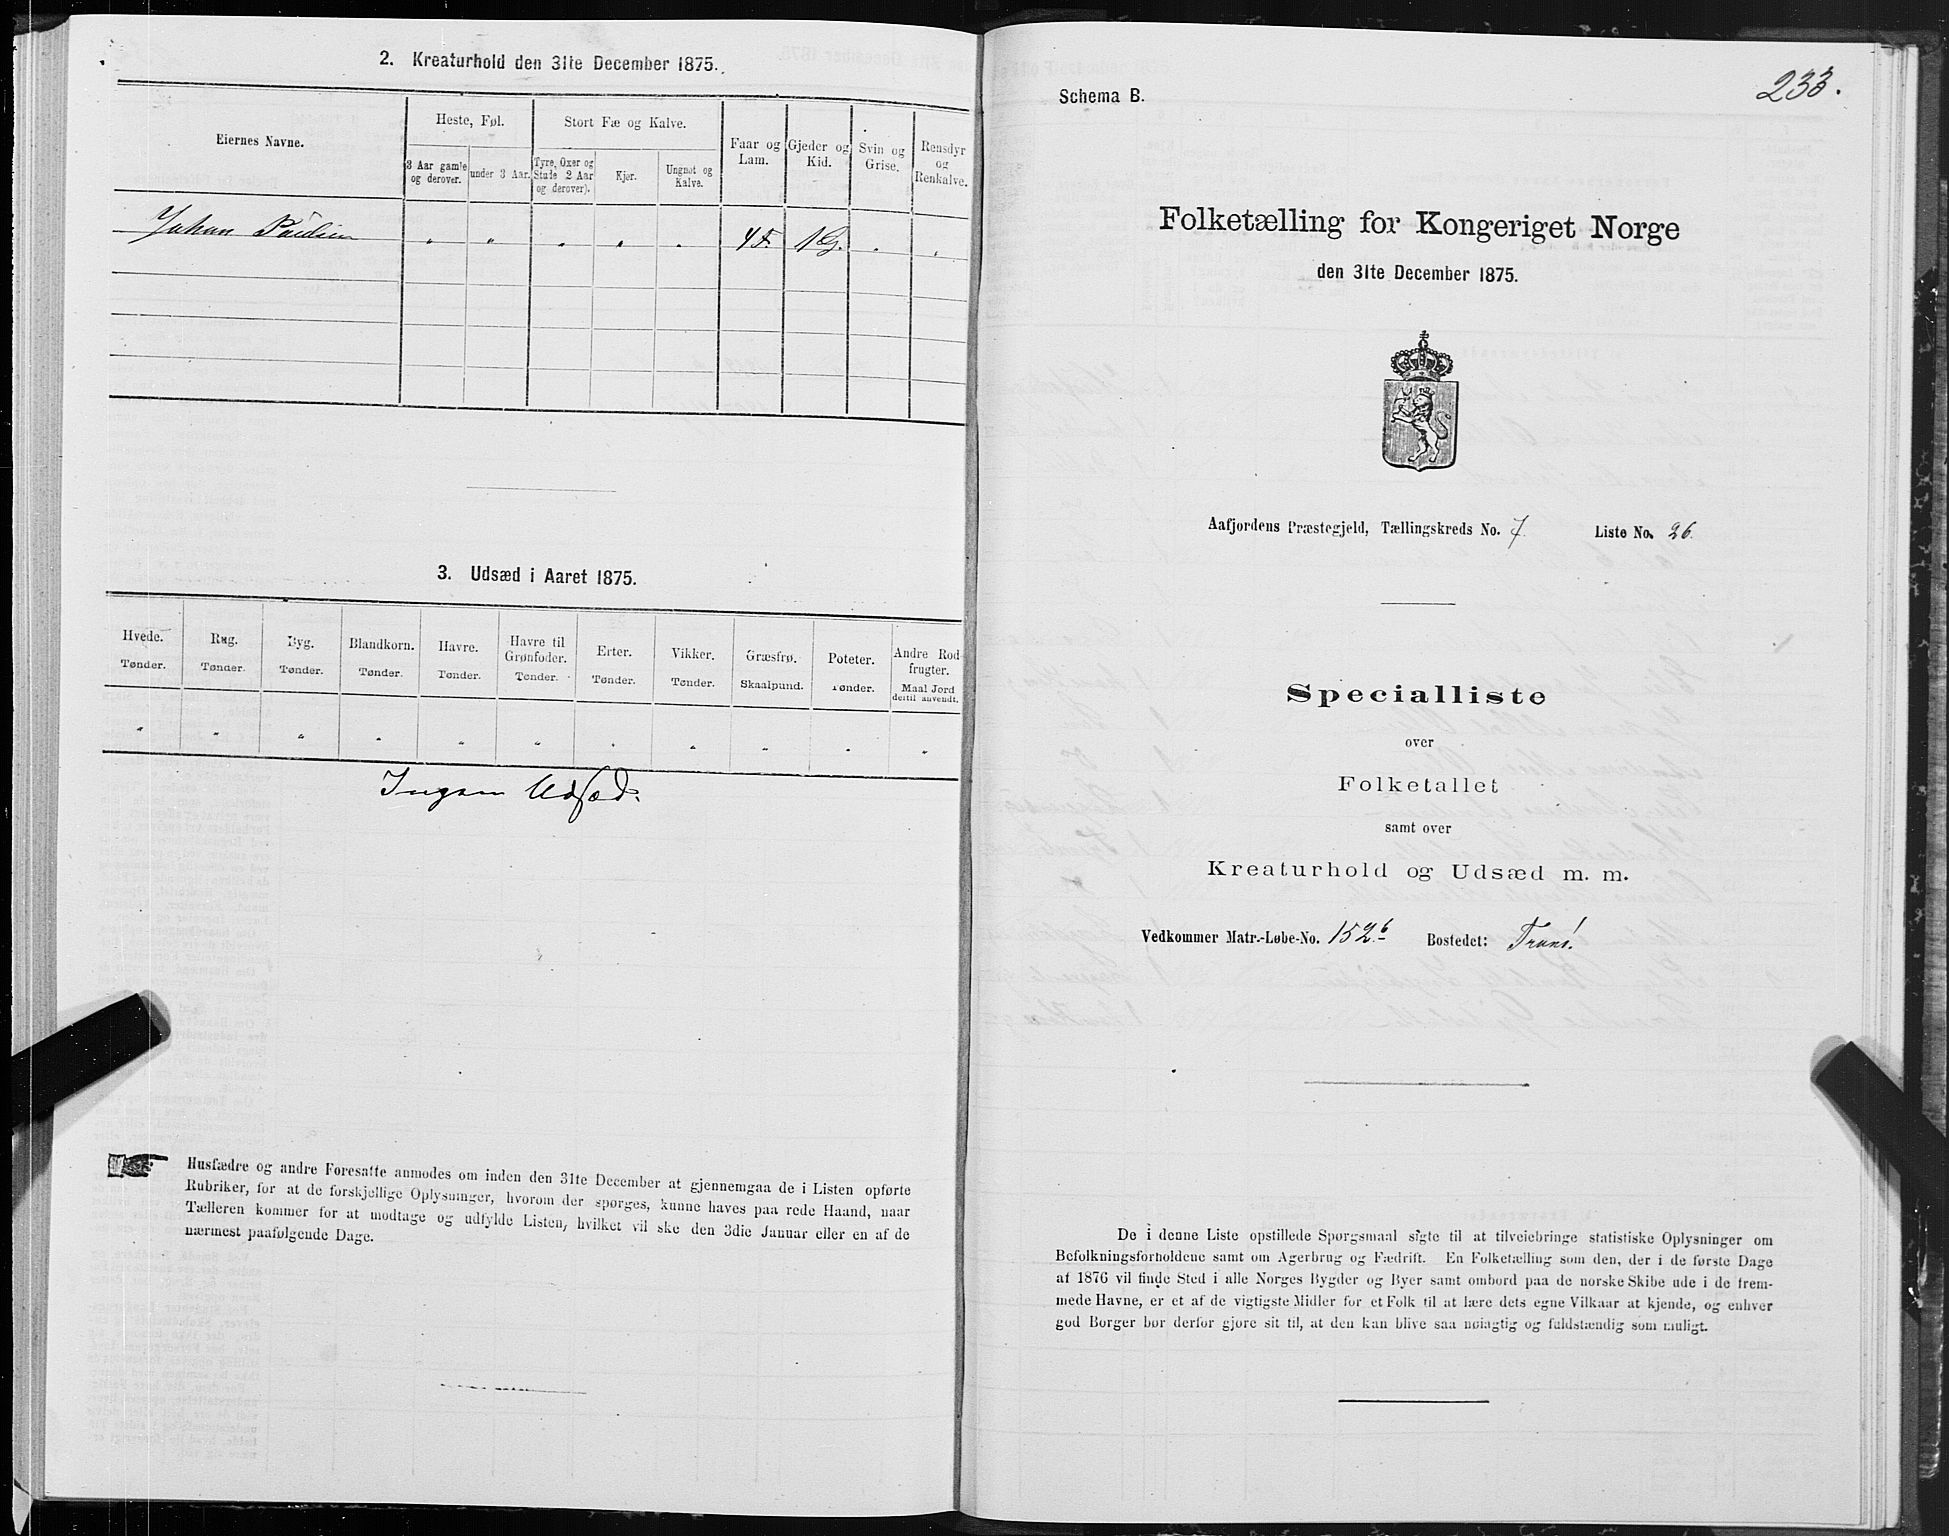 2. Kreaturhold den 31te December 1875.
Eiernes Navne.
Heste, Føl.
Stort Fæ og Kalve.
Faar og Lam.
Gjeder og Kid.
Svin og Grise.
Rensdyr og Renkalve.
3 Aar gamle og derover.
under 3 Aar.
Tyre, Oxer og Stude 2 Aar og derover).
Kjer.
Ungnøt og Kalve.
Johan Paulsen " " " " " 4F. 1G. " "
3. Udsæd i Aaret 1875.
Hvede. Rug. Byg. Blandkorn. Havre. Havre til Grønfoder. Erter. Vikker. Græsfrø. Poteter. Andre Rodfrugter.
Tønder. Tønder. Tønder. Tønder. Tønder. Tønder. Tønder. Tønder. Skaalpund. Tønder. Maal Jord dertil anvendt.
" " " " " " " " " " "
Ingen Udsæd.
Husfædre og andre Foresatte anmodes om inden den 31te December at gjennemgaa de i Listen opførte
Rubriker, for at de forskjellige Oplysninger, hvorom der spørges, kunne haves paa rede Haand, naar
Tælleren kommer for at modtage og udfylde Listen, hvilket vil ske den 3die Januar eller en af de
nærmest paafølgende Dage.
233.
Schema B.
Folketælling for Kongeriget Norge
den 31te December 1875.
Aafjordens Præstegjeld, Tællingskreds No. 7 Liste No. 26.
Specialliste
over
Folketallet
samt over
Kreaturhold og Udsæd m. m.
Vedkommer Matr.-Løbe-No. 152b Bostedet:
De i denne Liste opstillede Spørgsmaal sigte til at tilveiebringe statistiske Oplysninger om
Befolkningsforholdene samt om Agerbrug og Fædrift. En Folketælling som den, der i de første Dage
af 1876 vil finde Sted i alle Norges Bygder og Byer samt ombord paa de norske Skibe ude i de frem-
mede Havne, er et af de vigtigste Midler for et Folk til at lære dets egne Vilkaar at kjende, og enhver
god Borger bør derfor gjøre sit til, at den kan blive saa nøiagtig og fuldstændig som muligt.